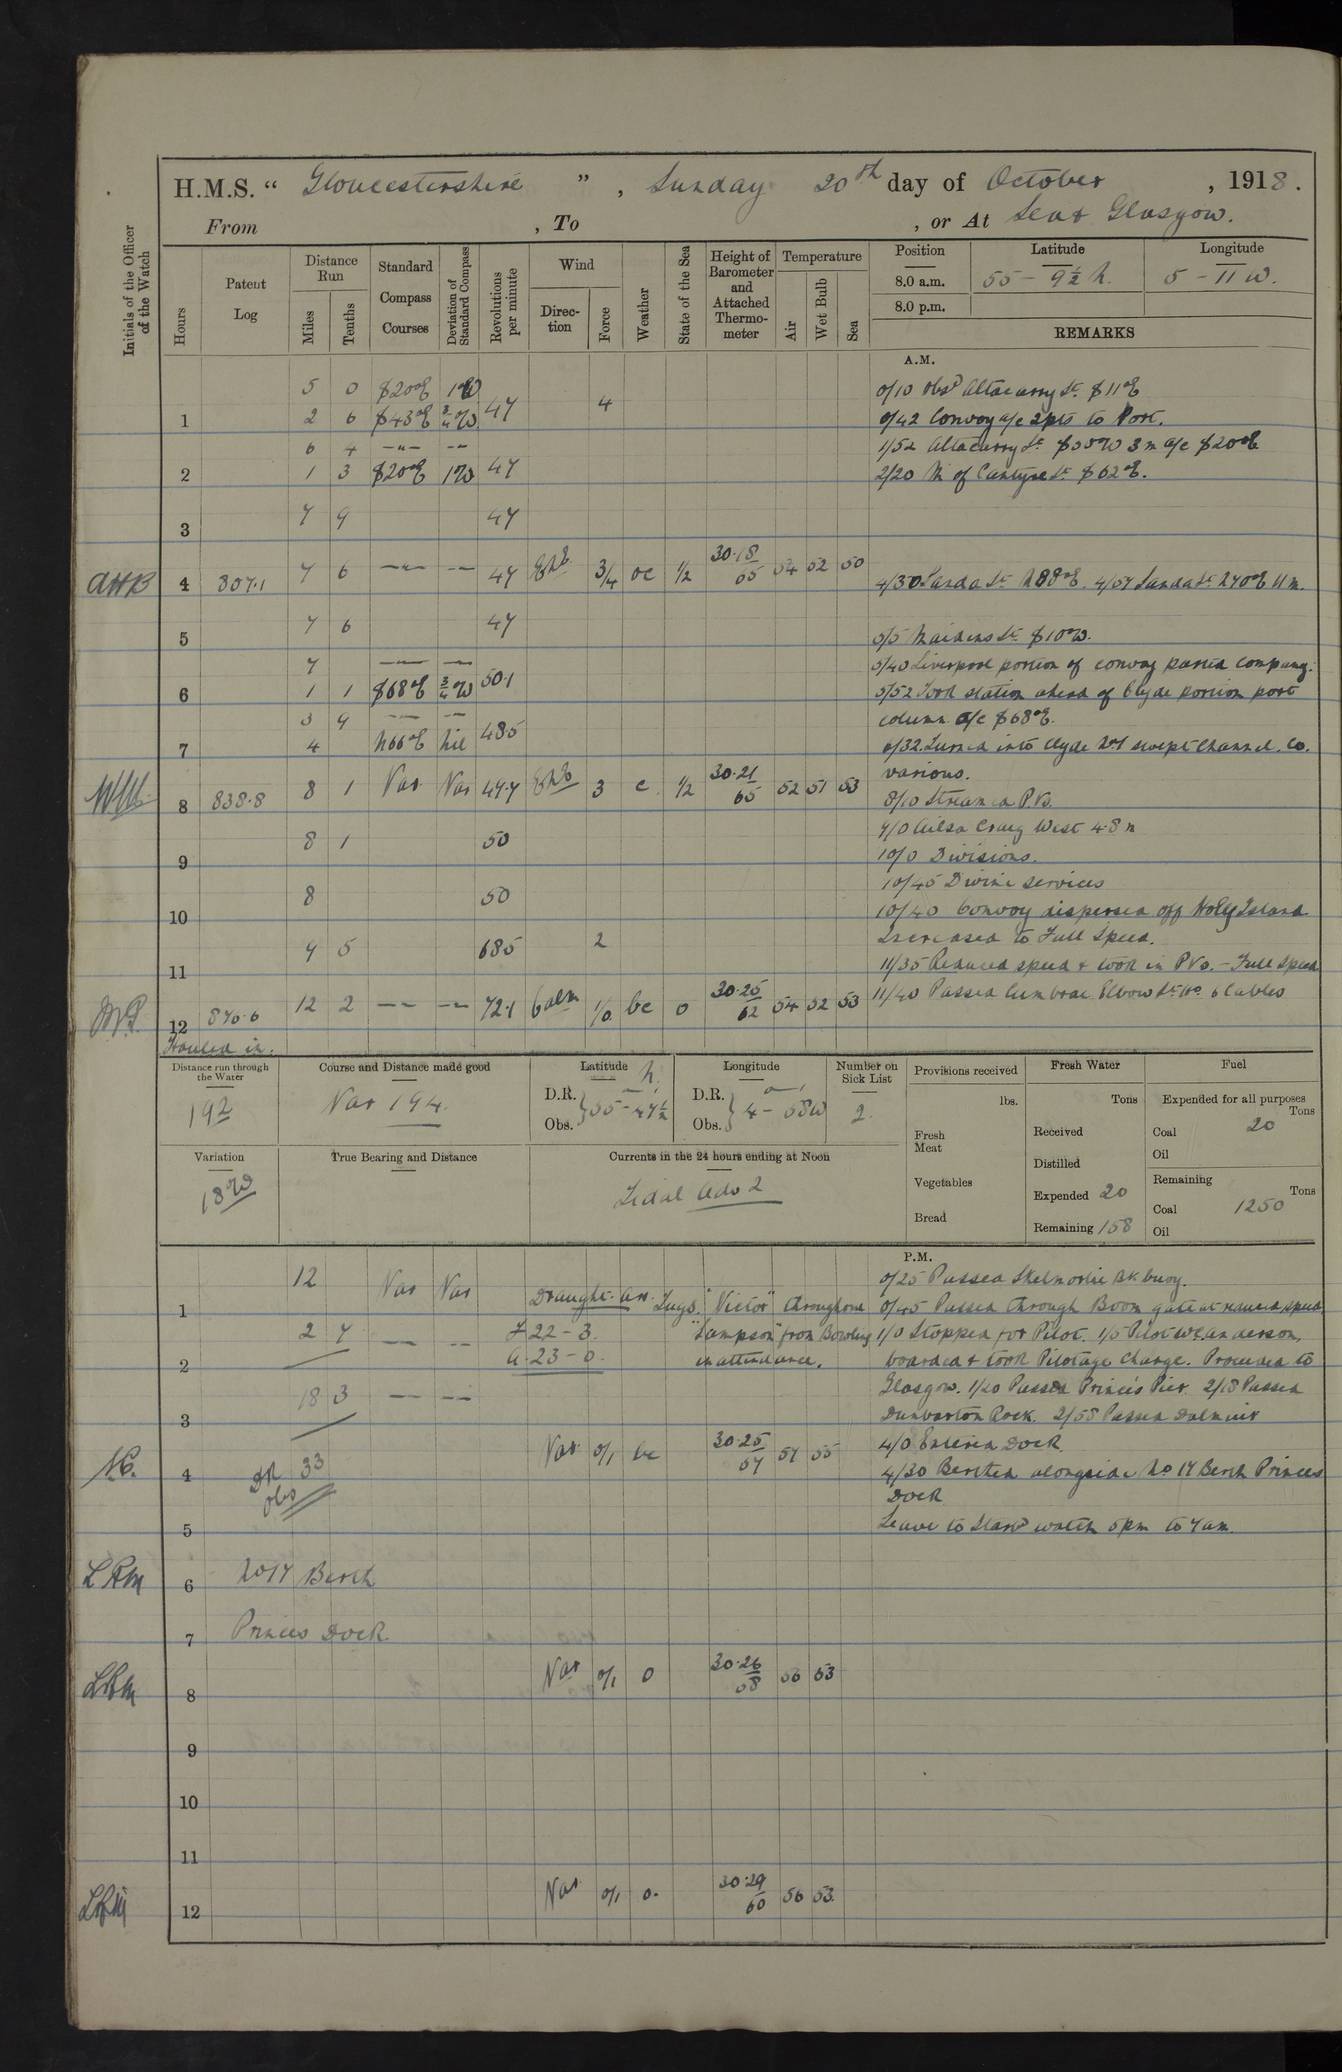 H.M.S. “ Gloucestershire ” , Sunday 20th day of October , 1918.
From , To , or At Sea & Glasgow.
Initials of the Officer of the Watch
Hours
Patent Log
Distance Run
Miles
Tenths
Standard Compass Courses
Deviation of Standard Compass
Revolutions per minute
Wind
Direction
Force
Weather
State of the Sea
Height of Barometer and Attached Thermometer
Temperature
Air
Wet Bulb
Sea
Position
Latitude
Longitude
8.0 a.m. 55 - 9½ N. 5 - 11 W.
8.0 p.m.
REMARKS
A.M.
5 0 S20°E 1°W
0/10 Obsd Altacarry Lt. S11°E
1 2 6 S43°E ¾°W 47 4
0/42 Convoy a/c 2pts to Port.
6 4 -"- -"-
1/52 Altacarry Lt. 3m a/c S20°E
2 1 3 S20°E 1°W 47
2/20 M of Cantyre Lt. S62°E.
3 7 9 47
AHB 4 807.1 7 6 -"- -"- 47 3/4 oc 1/2 30.18 65 54 52 50
4/30 Sanda Lt. N88°E. 4/57 Sanda Lt. 11m.
5 7 6 47
5/5 Maidens Lt. S10°W.
7 -"- -"-
5/40 Liverpool portion of convoy parted company.
6 1 1 S68°E ¾°W 50.1
5/52 Took station ahead of Clyde portion port
3 9 -"- -"-
column. a/c S68°E.
7 4 N66°E nil 48.5
6/32 Turned into Clyde No1 swept Channel. Co.
various.
8 838.8 8 1 Var Var 47.7 3 c 1/2 30.21 65 52 51 53
8/10 Streamed P.Vs.
9/0 Ailsa Craig West 4.8m
9 8 1 50
10/0 Divisions.
10/45 Divine services
10 8 50
10/40 Convoy dispersed off Holy Island
Increased to Full Speed.
11 9 5 68.5 2
11/35 Reduced speed & took in PVs. - Full Speed
12 870.6 12 2 -"- -"- 72.1 Calm 1/0 bc 0 30.25 62 54 52 53
11/40 Passed Cumbrae Elbow Lt. Ho 6 Cables
Hauled in.
Distance run through the Water
192
Course and Distance made good
Var 194.
Latitude N.
D.R.
Obs. 55 - 47½
Longitude
D.R.
Obs. 4 - 58W
Number on Sick List
2.
Provisions received
lbs.
Fresh Meat
Vegetables
Bread
Fresh Water
Tons
Received
Distilled
Expended 20
Remaining 158
Fuel
Expended for all purposes
Tons
Coal 20
Oil
Remaining
Tons
Coal 1250
Oil
Variation
18°W
True Bearing and Distance
Currents in the 24 hours ending at Noon
Tidal Adv 2
P.M.
1 12 Var Var
Draught. arr.
F 22 - 3.
A. 23 - 0.
Tugs. "Victor" throughout
"Sampson" from Bowling
in attendance.
0/25 Passed Skelmorlie Bk. buoy.
0/45 Passed through Boom gate at reduced speed
2 2 7 -"- -"-
1/0 Stopped for Pilot. 1/5 Pilot Anderson,
boarded & took Pilotage Charge. Proceeded to
Glasgow. 1/20 Passed Princes Pier. 2/18 Passed
3 18 3 -"- -"-
Dunbarton Rock. 2/58 Passed Dalmuir
4/0 Entered Dock.
4 DR obs 33 Var. 0/1 bc 30.25 57 57 55
4/30 Berthed alongside No 17 Berth Princes
Dock
5
Leave to Starbd watch 5pm to 7am.
LRM 6 No17 Berth
7 Princes Dock.
LRM 8 Var 0/1 0 30.26 58 56 53
9
10
11
LRM 12 Var 0/1 0. 30.29 60 56 53